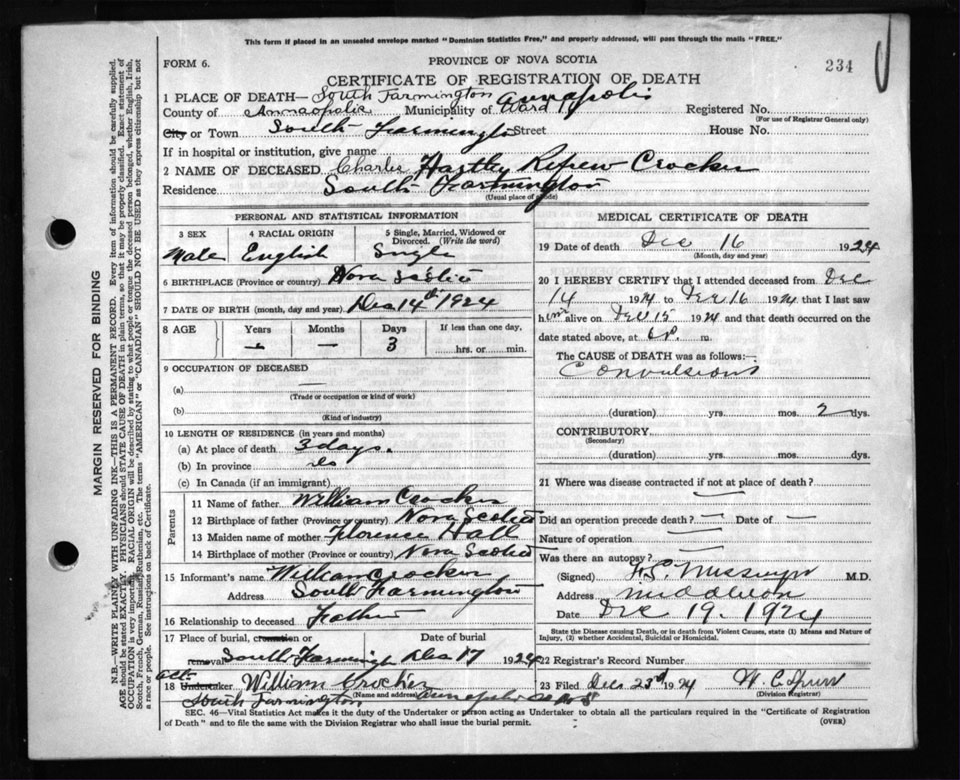 This form if placed in an unsealed envelope marked "Dominion Statistics Free," and properly addressed, will pass through the mails "FREE."
FORM 6.
PROVINCE OF NOVA SCOTIA
234
CERTIFICATE OF REGISTRATION OF DEATH
1 PLACE OF DEATH— South Farmington Annapolis
County of Annapolis Municipality of Ward Registered No.
(For use of Registrar General only)
City or Town South Farmington Street House No.
If in hospital or institution, give name
2 NAME OF DECEASED Charles Hartley Crocker
Residence South Farmington
(Usual place of abode)
PERSONAL AND STATISTICAL INFORMATION
3 SEX 4 RACIAL ORIGIN 5 Single, Married, Widowed or Divorced. (Write the word)
Male English Single
6 BIRTHPLACE (Province or country) Nova Scotia
7 DATE OF BIRTH (month, day and year) Dec 14th 1924
8 AGE Years Months Days If less than one day,
– — 3 hrs. or min.
9 OCCUPATION OF DECEASED
(a) —
(Trade or occupation or kind of work)
(b)
(Kind of industry)
10 LENGTH OF RESIDENCE (in years and months)
(a) At place of death 3 days.
(b) In province do
(c) In Canada (if an immigrant)
Parents
11 Name of father William Crocker
12 Birthplace of father (Province or country) Nova Scotia
13 Maiden name of mother Florence Hall
14 Birthplace of mother (Province or country) Nova Scotia
15 Informant's name William Crocker
Address South Farmington
16 Relationship to deceased Father
17 Place of burial, cremation or removal Date of burial
South Farmington Dec 17 1924
18 Undertaker William Crocker
(Name and address)
South Farmington
MEDICAL CERTIFICATE OF DEATH
19 Date of death Dec 16 1924
(Month, day and year)
20 I HEREBY CERTIFY that I attended deceased from Dec
14 1924 to Dec 16 1924 that I last saw
him alive on Dec 15 1924 and that death occurred on the
date stated above, at 6 P. m.
The CAUSE of DEATH was as follows:—
Convulsions
(duration) yrs. mos. 2 dys.
CONTRIBUTORY
(Secondary)
(duration) yrs. mos. dys.
21 Where was disease contracted if not at place of death?
—
Did an operation precede death? — Date of —
Nature of operation —
Was there an autopsy? —
(Signed) M.D.
Address Middleton
Date Dec 19. 1924
State the Disease causing Death, or in death from Violent Causes, state (1) Means and Nature of Injury, (2) whether Accidental, Suicidal or Homicidal.
22 Registrar's Record Number
23 Filed Dec 23rd 1924 W. C.
(Division Registrar)
SEC. 46—Vital Statistics Act makes it the duty of the Undertaker or person acting as Undertaker to obtain all the particulars required in the "Certificate of Registration
of Death" and to file the same with the Division Registrar who shall issue the burial permit.
(OVER)
MARGIN RESERVED FOR BINDING
N.B.—WRITE PLAINLY WITH UNFADING INK—THIS IS A PERMANENT RECORD. Every item of information should be carefully supplied.
AGE should be stated EXACTLY. PHYSICIANS should STATE CAUSE OF DEATH in plain terms, so that it may be properly classified. Exact statement of
OCCUPATION is very important. RACIAL ORIGIN will be described by stating to what people or tongue the deceased person belonged, whether English, Irish,
Scotch, French, German, Russian, Ruthenian, etc. The terms "AMERICAN" or "CANADIAN" SHOULD NOT BE USED as they express citizenship but not
a race or people. See instructions on back of Certificate.